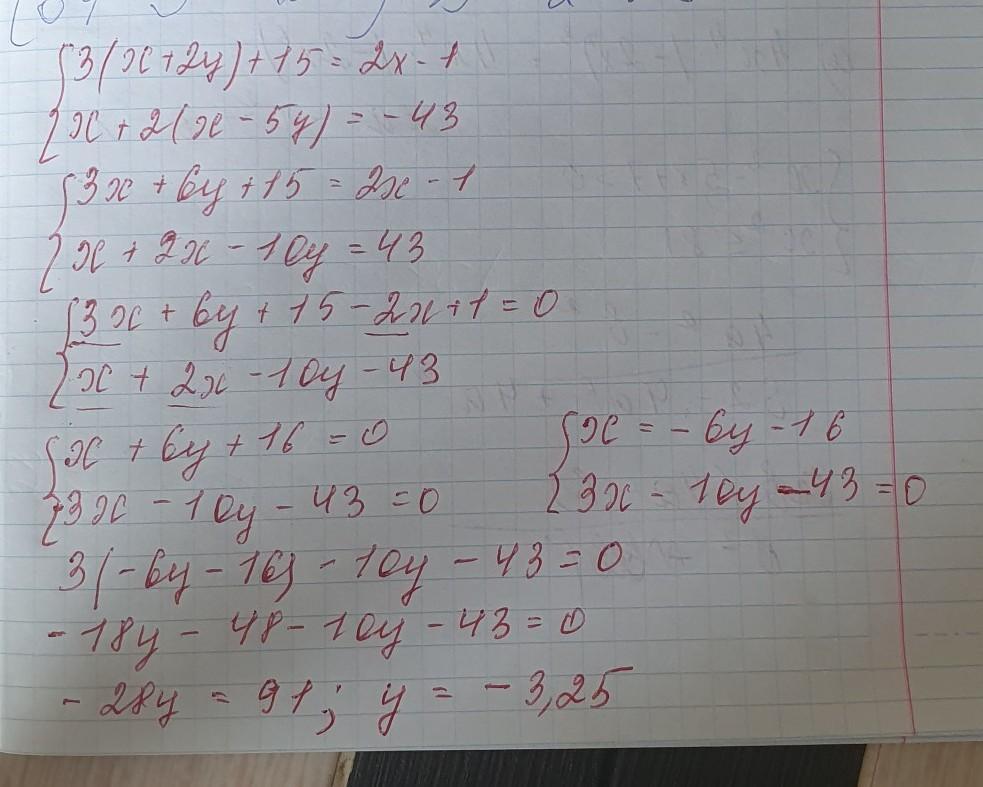 {3(x+2y)+15=2x-1
{x+2(x-5y)=-43
{3x+6y+15=2x-1
{x+2x-10y=43
{3x+6y+15-2x+1=0
{x+2x-10y-43
{x+6y+16=0
{3x-10y-43=0
{x=-6y-16
{3x-10y-43=0
3(-6y-16)-10y-43=0
-18y-48-10y-43=0
-28y=91; y=-3,25